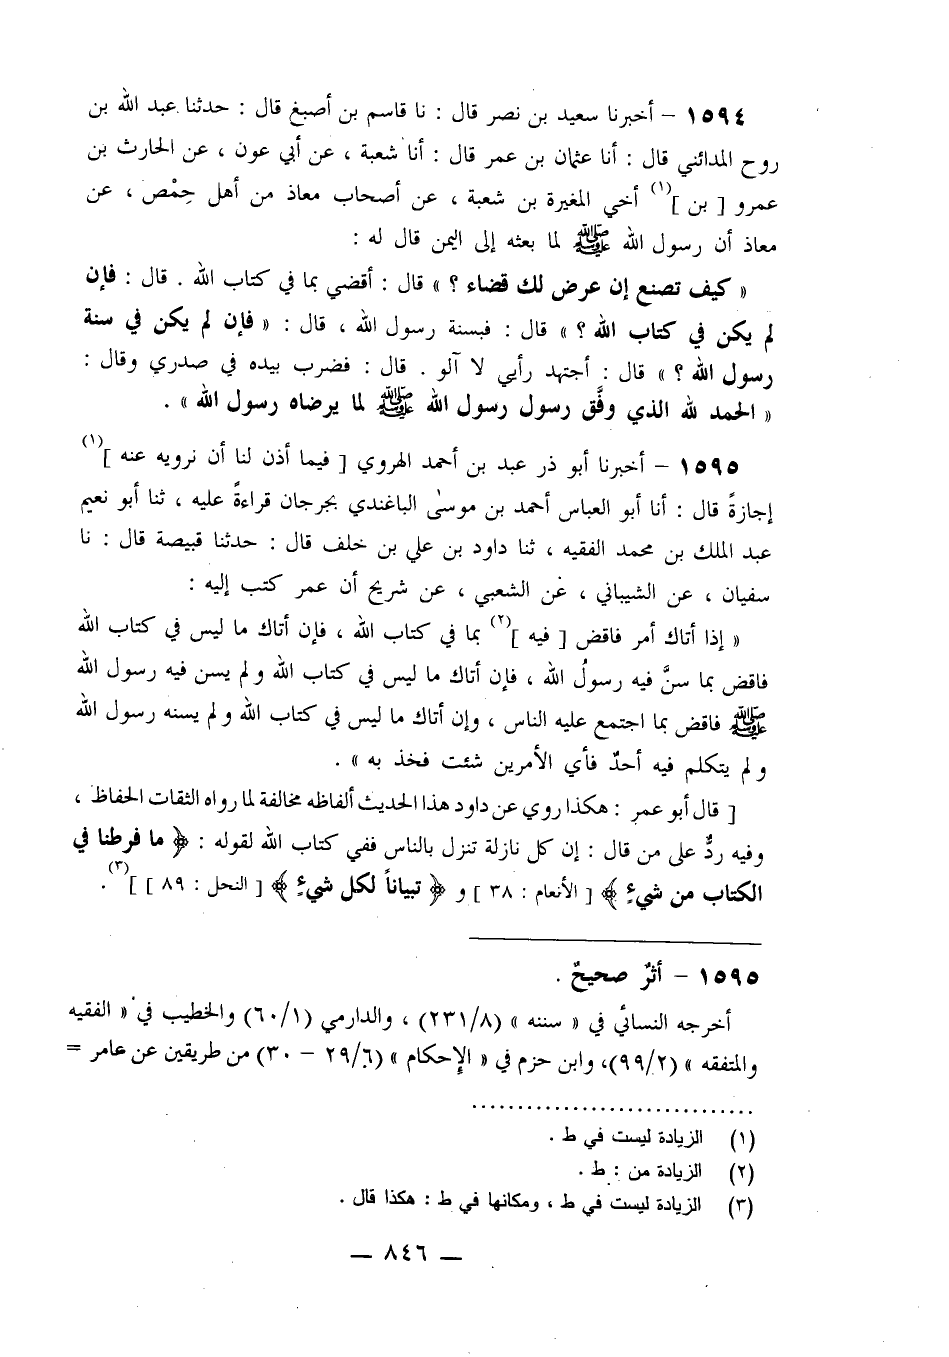 ١٥٩٤ – أخبرنا سعيد بن نصر قال : نا قاسم بن أصبغ قال : حدثنا عبد الله بن
روح المدائني قال : أنا عثمان بن عمر قال : أنا شعبة ، عن أبي عون ، عن الحارث بن
عمرو [ بن ](١) أخي المغيرة بن شعبة ، عن أصحاب معاذ من أهل حِمْص ، عن
معاذ أن رسول الله ﷺ لما بعثه إلى اليمن قال له :
« كيف تصنع إن عرض لك قضاء ؟ » قال : أقضي بما في كتاب الله . قال : فإن
لم يكن في كتاب الله ؟ » قال : فبسنة رسول الله ، قال : « فإن لم يكن في سنة
رسول الله ؟ » قال : أجتهد رأيي لا آلو . قال : فضرب بيده في صدري وقال :
« الحمد لله الذي وفَّق رسول رسول الله ﷺ لما يرضاه رسول الله » .
١٥٩٥ – أخبرنا أبو ذر عبد بن أحمد الهروي [ فيما أذن لنا أن نرويه عنه ](١)
إجازةً قال : أنا أبو العباس أحمد بن موسىٰ الباغندي بجرجان قراءةً عليه ، ثنا أبو نعيم
عبد الملك بن محمد الفقيه ، ثنا داود بن علي بن خلف قال : حدثنا قبيصة قال : نا
سفيان ، عن الشيباني ، عن الشعبي ، عن شريح أن عمر كتب إليه :
« إذا أتاك أمر فاقض [ فيه ](٢) بما في كتاب الله ، فإن أتاك ما ليس في كتاب الله
فاقض بما سنَّ فيه رسولُ الله ، فإن أتاك ما ليس في كتاب الله ولم يسن فيه رسول الله
ﷺ فاقض بما اجتمع عليه الناس ، وإن أتاك ما ليس في كتاب الله ولم يسنه رسول الله
ولم يتكلم فيه أحدٌ فأي الأمرين شئت فخذ به » .
[ قال أبو عمر : هكذا روي عن داود هذا الحديث ألفاظه مخالفة لما رواه الثقات الحفاظ ،
وفيه ردٌّ على من قال : إن كل نازلة تنزل بالناس ففي كتاب الله لقوله : ﴿ ما فرطنا في
الكتاب من شيءٍ ﴾ [ الأنعام : ٣٨ ] و ﴿ تبياناً لكل شيءٍ ﴾ [ النحل : ٨٩ ] ](٣).
١٥٩٥ – أثرٌ صحيحٌ .
أخرجه النسائي في « سننه » (٢٣١/٨) ، والدارمي (٦٠/١) والخطيب في « الفقيه
والمتفقه » (٩٩/٢)، وابن حزم في « الإحكام » (٢٩/٦ – ٣٠) من طريقين عن عامر =
(١) الزيادة ليست في ط .
(٢) الزيادة من : ط .
(٣) الزيادة ليست في ط ، ومكانها في ط : هكذا قال .
— ٨٤٦ —